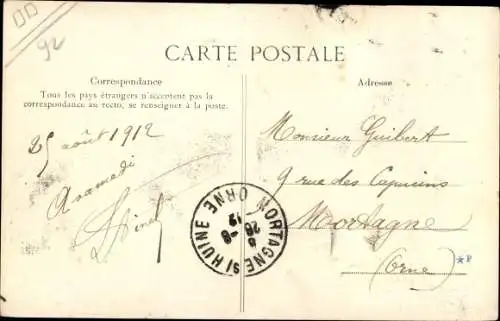 92
CARTE POSTALE
Correspondance
Tous les pays étrangers n'acceptent pas la
correspondance au recto, se renseigner à la poste.
25 août 1912
A samedi
Adresse
Monsieur Guibert
9 rue des Capucins
Mortagne
(Orne)
MORTAGNE S/ HUINE ORNE